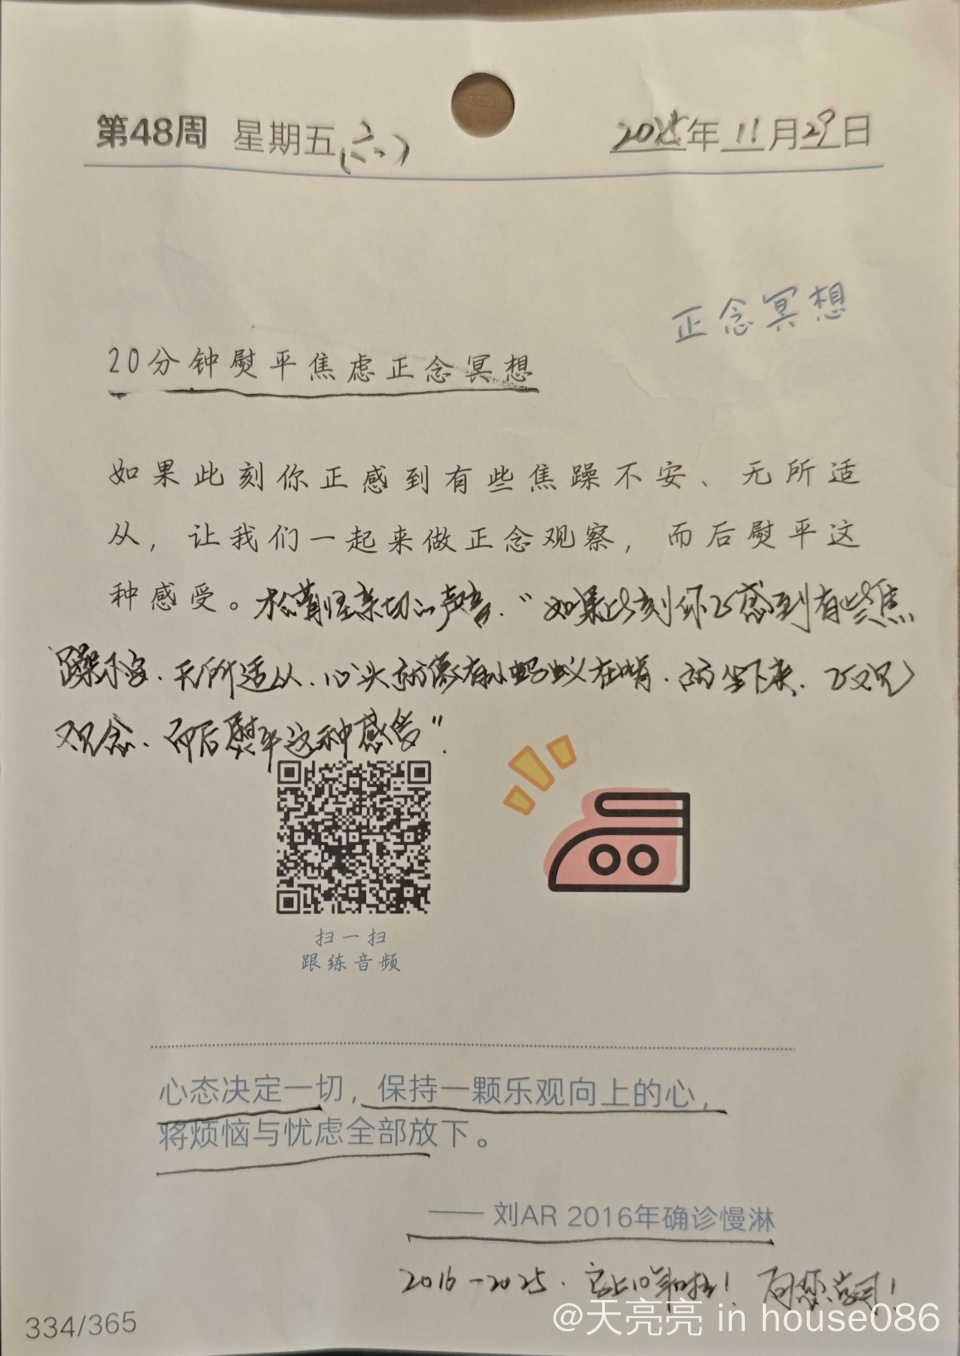 第48周 星期五(六) 2025年11月29日
正念冥想
20分钟熨平焦虑正念冥想
如果此刻你正感到有些焦躁不安、无所适
从，让我们一起来做正念观察，而后熨平这
种感受。 亲切的声音. "如果此刻你正感到有些焦
躁不安. 无所适从. 心头就像有小蚂蚁在啃. 坐下来. 正观
观念. 而后熨平这种感受".
扫一扫
跟练音频
心态决定一切，保持一颗乐观向上的心，
将烦恼与忧虑全部放下。
—— 刘AR 2016年确诊慢淋
2016-2025.
334/365
@天亮亮 in house086